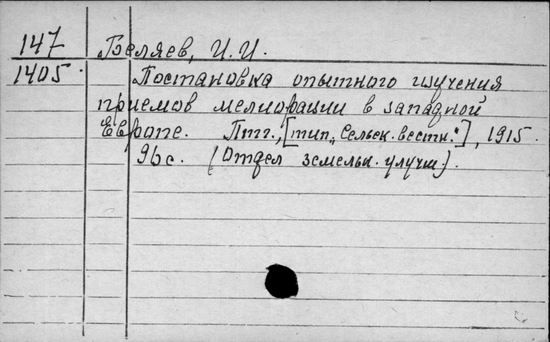 147 Беляев, И.И.
1405. Постановка опытного изучения
приемов мелиорации в западной
Европе. Птг., [тип. „Сельск. вестн."], 1915.
96с. (Отдел земельн. улучш.).